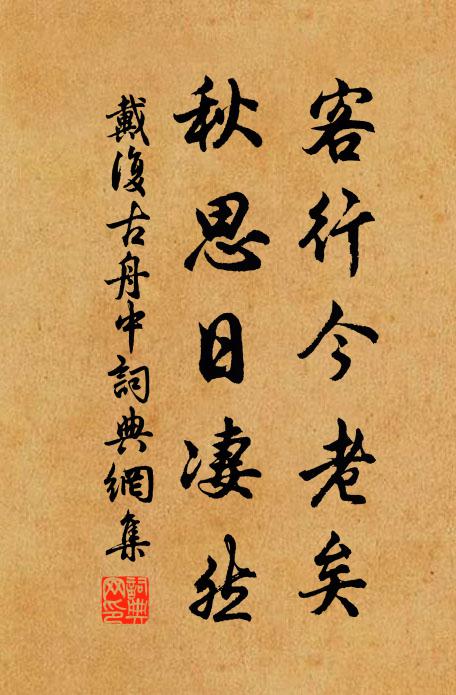 客行今老矣
秋思日凄然
戴復古舟中詞典網集
詞典
网印